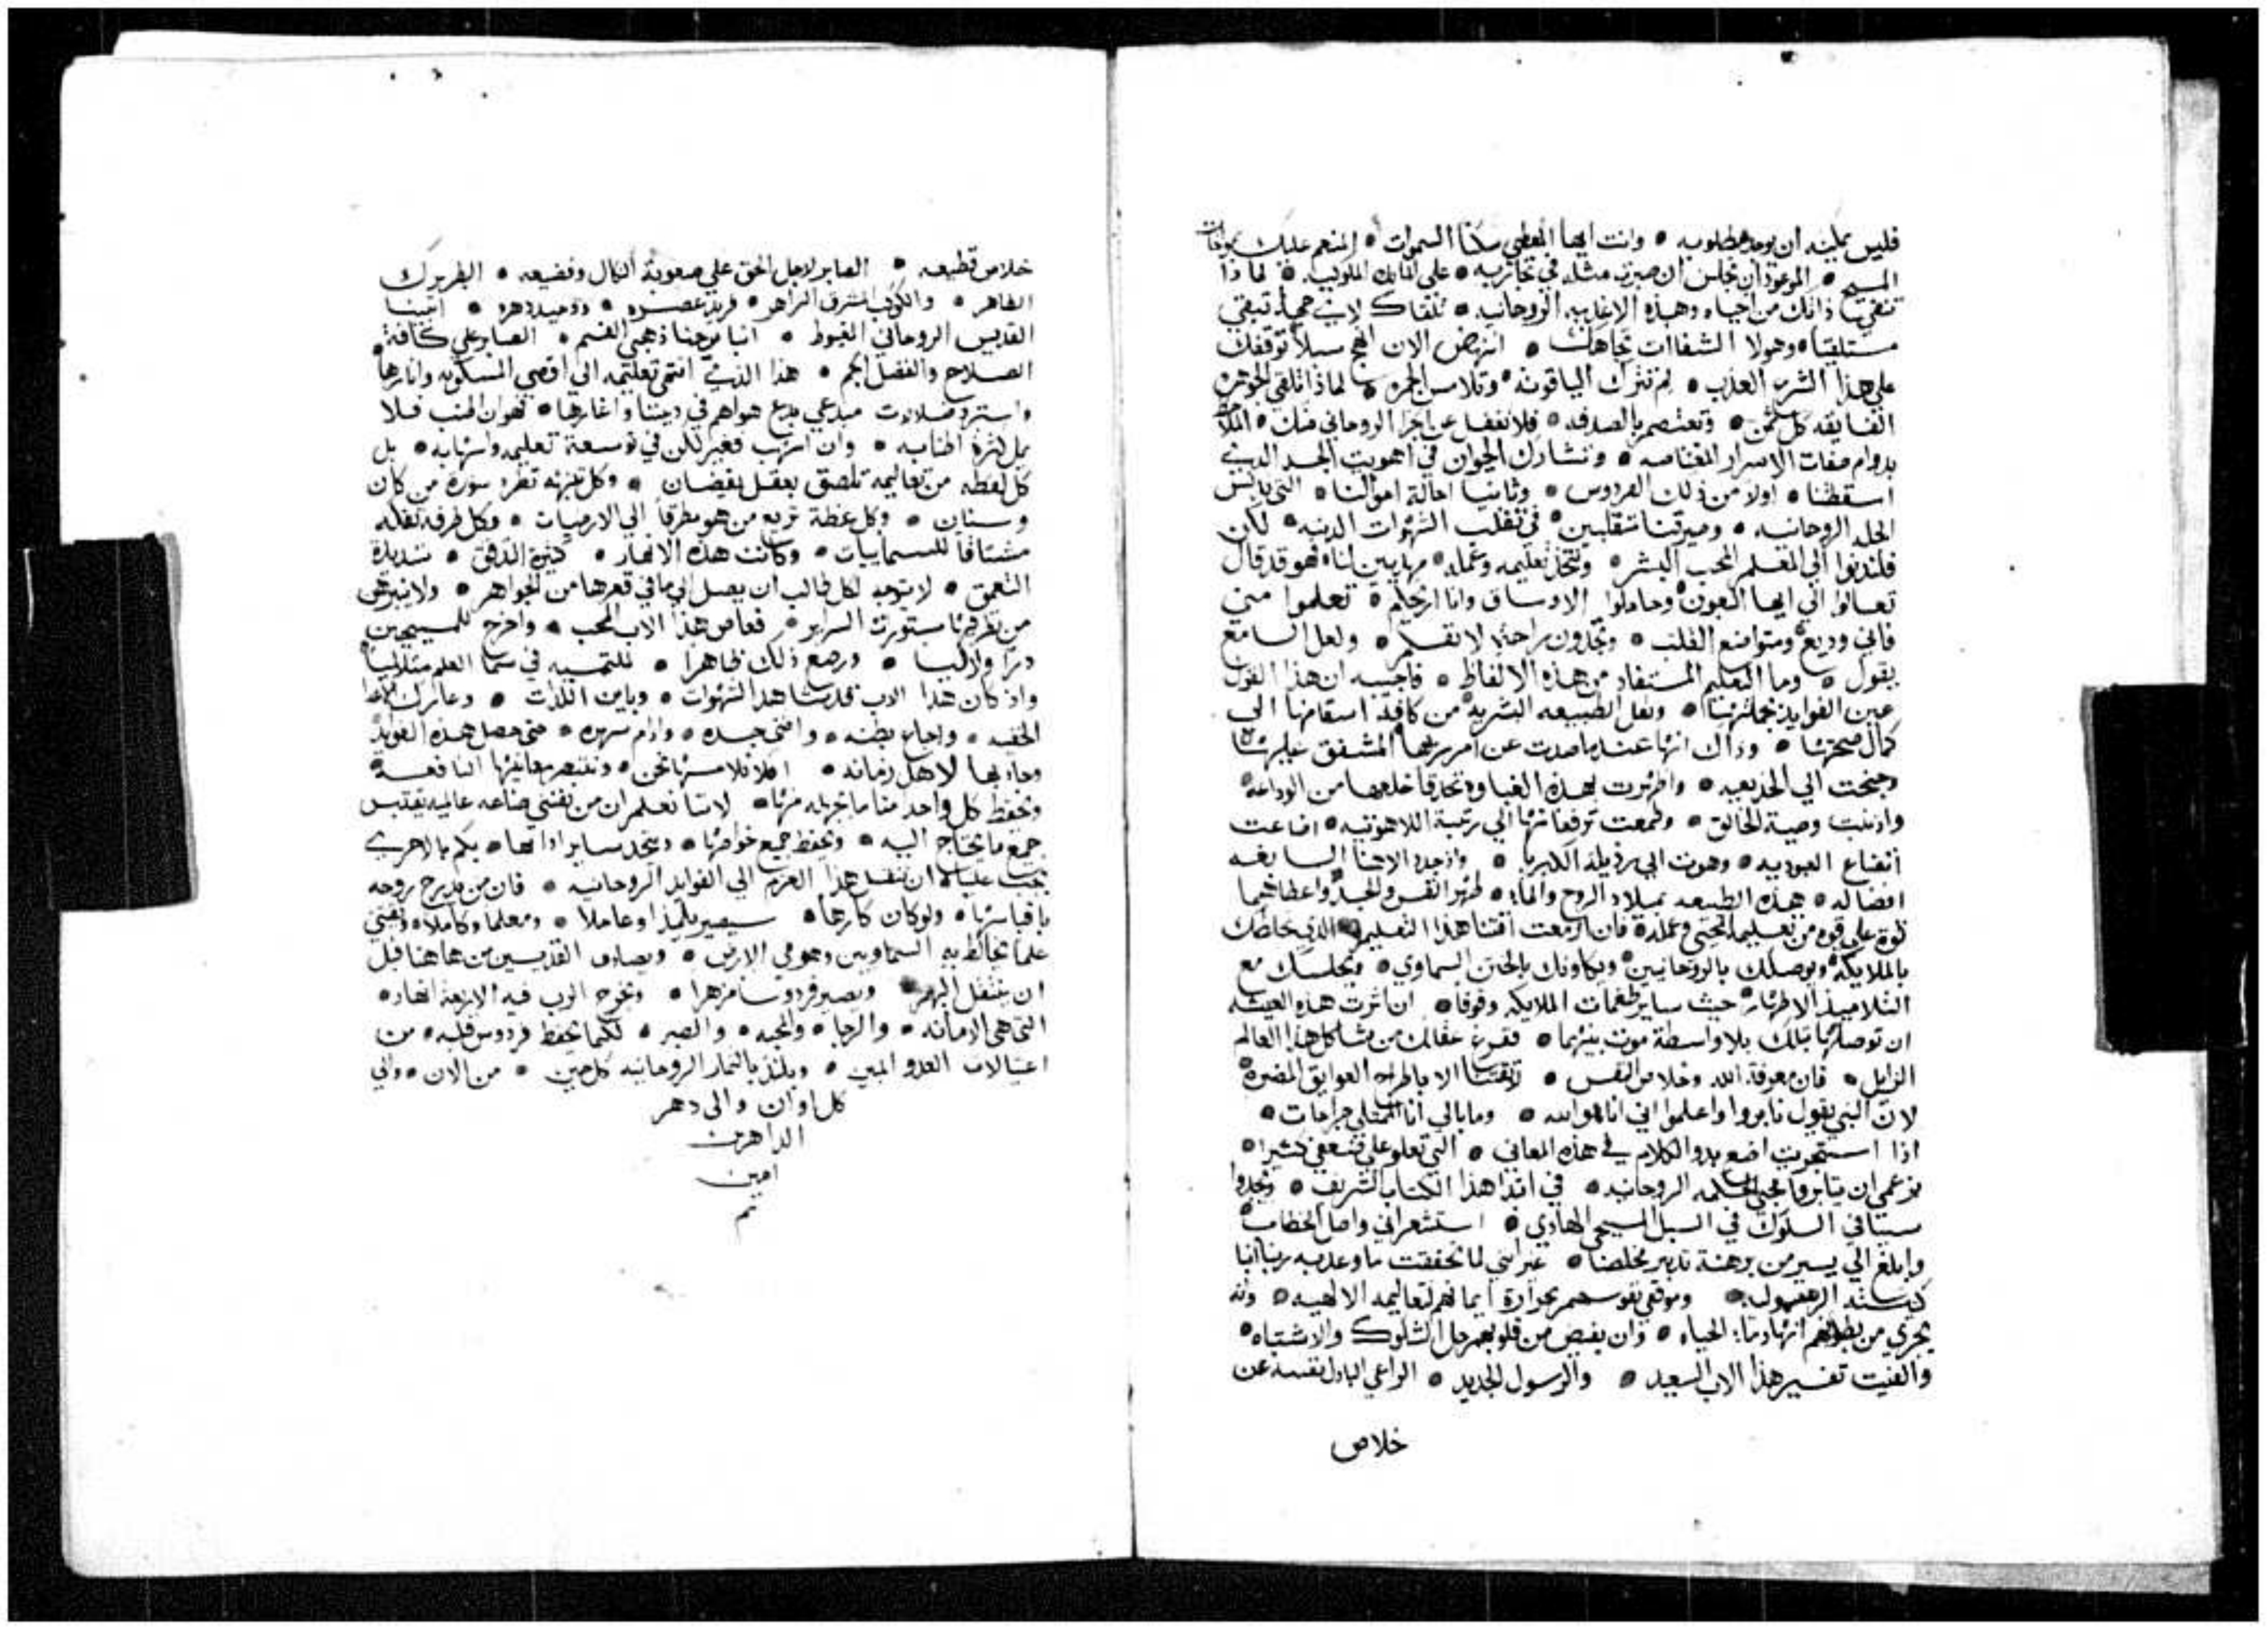 فليس يمكنه ان يوجد مطلوبه • وانت ايها المعطي سكنا السموات • المنعم عليك
المسيح • الموعود ان تجلس ان صبرت مثله في تجاربه • على • لماذا
ذاتك من الحياه وهذه الاغذيه الروحانيه • تلقاك لاي تبقي
مستلقيا • وهولا الشفاات تجاهك • انهض الان
علي هذا الشرب العذب • لم تترك الياقوته • وتلامس الجمره • لماذا تلقي الجوهره
الفايقه كل ثمن • وتعتصم بالصدفه • فلا تغفل عن الجز الروحاني منك •
بدوام صفات الاسرار • وتشارك الحيوان في اهويت الجسد الذي
اسقطنا • اولا من ذلك الفردوس • وثانيا احالة اموالنا • التي
الحله الروحانيه • وصيرتنا متقلبين • في تقلب الشهوات الدنيه • لكن
فلندنوا الي المعلم المحب البشر • ونتخذ تعليمه وعمله • لنا • فهو قد قال
تعالوا الي ايها التعبون • وحاملوا الاوساق وانا اريحكم • تعلموا مني
فاني وديع ومتواضع القلب • وتجدون راحة لانفسكم • ولعل السامع
يقول • وما التعليم المستفاد من هذه الالفاظ • فاجيبه ان هذا القول
عين الفوايد جملتها • ونقل الطبيعه البشريه من كافة اسقامها الي
كمال صحتها • وذاك انها عندما صدت عن امر ربها المشفق عليها
وجنحت الي الخديعه • واظهرت هذه الغباوه خلعها من الوداعه
وادنت وصية الخالق • وطمعت ترفعا منها الي رتبة اللاهوتيه • اضاعت
اتضاع العبوديه • وهوت الي رذيلة الكبريا • واذ جدد الاهنا السابغه
افضاله • هذه الطبيعه بميلاد الروح والماء • طهر النفس والجسد واعطاهما
قوة علي قوه من تعليمه المحيي وعمله • فان ازمعت اقتنا هذا التعليم • الذي يخلطك
بالملايكه ويوصلك بالروحانيين • السماوي • ويجلسك مع
التلاميذ الاطهار • حيث ساير طغمات الملايكه وقوفا • ان اثرت هذه العيشه
ان توصلها بتلك بلا واسطة موت بينهما • عقلك من مشاكل هذا العالم
الزايل • فان معرفة الله وخلاص النفس • لا الا باطراح العوايق المضره
لان النبي يقول ثابروا واعلموا اني انا هو الله • وما بالي انا الممتلي جراحات •
اذا استجريت اضع بدو الكلام في هذه المعاني • التي تعلو علي ضعفي كثيرا •
مزعمي ان يثابروا محبي الحكمه الروحانيه • في اقتنا هذا الكتاب الشريف • وتجدوا
سبتا في السلوك في السبل المسيحي الهادي • استشعراني واصل الخطاب
وابلغ الي يسير من برهنة تدبير مخلصنا • غير انني لما تحققت ما وعد به ربنا
وموقني نفوسهم بحرارة ايمانهم لتعاليمه الالهيه • وانه
يجري من بطونهم انهار ماء الحياه • وان يفيض من قلوبهم حل الشكوك والاشتباه •
والفيت تفسير هذا الاب السعيد • والرسول الجديد • الراعي الباذل نفسه عن
خلاص
خلاص قطيعه • الصابر لاجل الحق علي صعوبة النكال وفضيعه • البطريرك
الطاهر • والكوكب المشرق الزاهر • فريد عصره • ووحيد دهره • ابينا
القديس الروحاني المغبوط • انبا يوحنا ذهبي الفم • الصابر علي كافة
الصلاح والفضل الجم • هذا الذي انتهي تعليمه الي اقصي المسكونه وانارها
واسترد ضلالات مبدعي بدع هواهم في ديننا واغارها • فهو ان اطنب فلا
يمل لكثرة اطنابه • وان اسهب فغير لكن في توسعة تعليمه واسهابه • بل
كل لفظه من تعاليمه تلصق بعقل يقضان • وكل تنزيه تطرد سورة من كان
وسنان • وكل عظة تريع من هو مطرقا الي الارضيات • وكل طرفه تقله
مشتاقا للسماييات • وكانت هذه الانهار • كثيرة الدفق • شديدة
التعمق • لا يتوجد لكل طالب ان يصل الي ما في قعرها من الجواهر • ولا
من مستورت السراير • فغاص هذا الاب المحب • واخرج للمسيحيين
درا ولاليا • ورصع ذلك ظاهرا • في سما العلم متلاليا
واذ كان هذا الاب قد شاهد الشهوات • وباين اللذات • وعارك
الخفيه • واجاع بطنه • واضني جسده • وادام سهره • حتي حصل هذه الفوايد
وجاد بها لاهل زمانه • افلا نلامسها نحن • وننتصر بمعانيها النافعه
ونحفظ كل واحد منا ما يجزيه منها • لاننا نعلم ان من يقتني صناعه عالميه يقتبس
جمع ما يحتاج اليه • ويحفظ جميع خواصها • ويتخذ ساير اداتها • بكم بالاحري
يجب علينا ان ننقل هذا العزم الي الفوايد الروحانيه • فان من يدرج روحه
باقباسها • ولو كان كارها • سيصير تلميذا وعاملا • ومعلما وكاملا • ويقتني
علما يخالط به السماويين وهو في الارض • ويصادف القديسين من هاهنا قبل
ان ينتقل اليهم • ويصير فردوسا مزهرا • ويخرج الرب فيه الاربعة انهار •
التي هي الامانه • والرجا • والمحبه • والصبر • لكيما يحفظ فردوس قلبه • من
اغتيالات العدو المبين • ويلتذ بالثمار الروحانيه كل حين • من الان • والي
كل اوان والي دهر
الداهرين
امين
تم